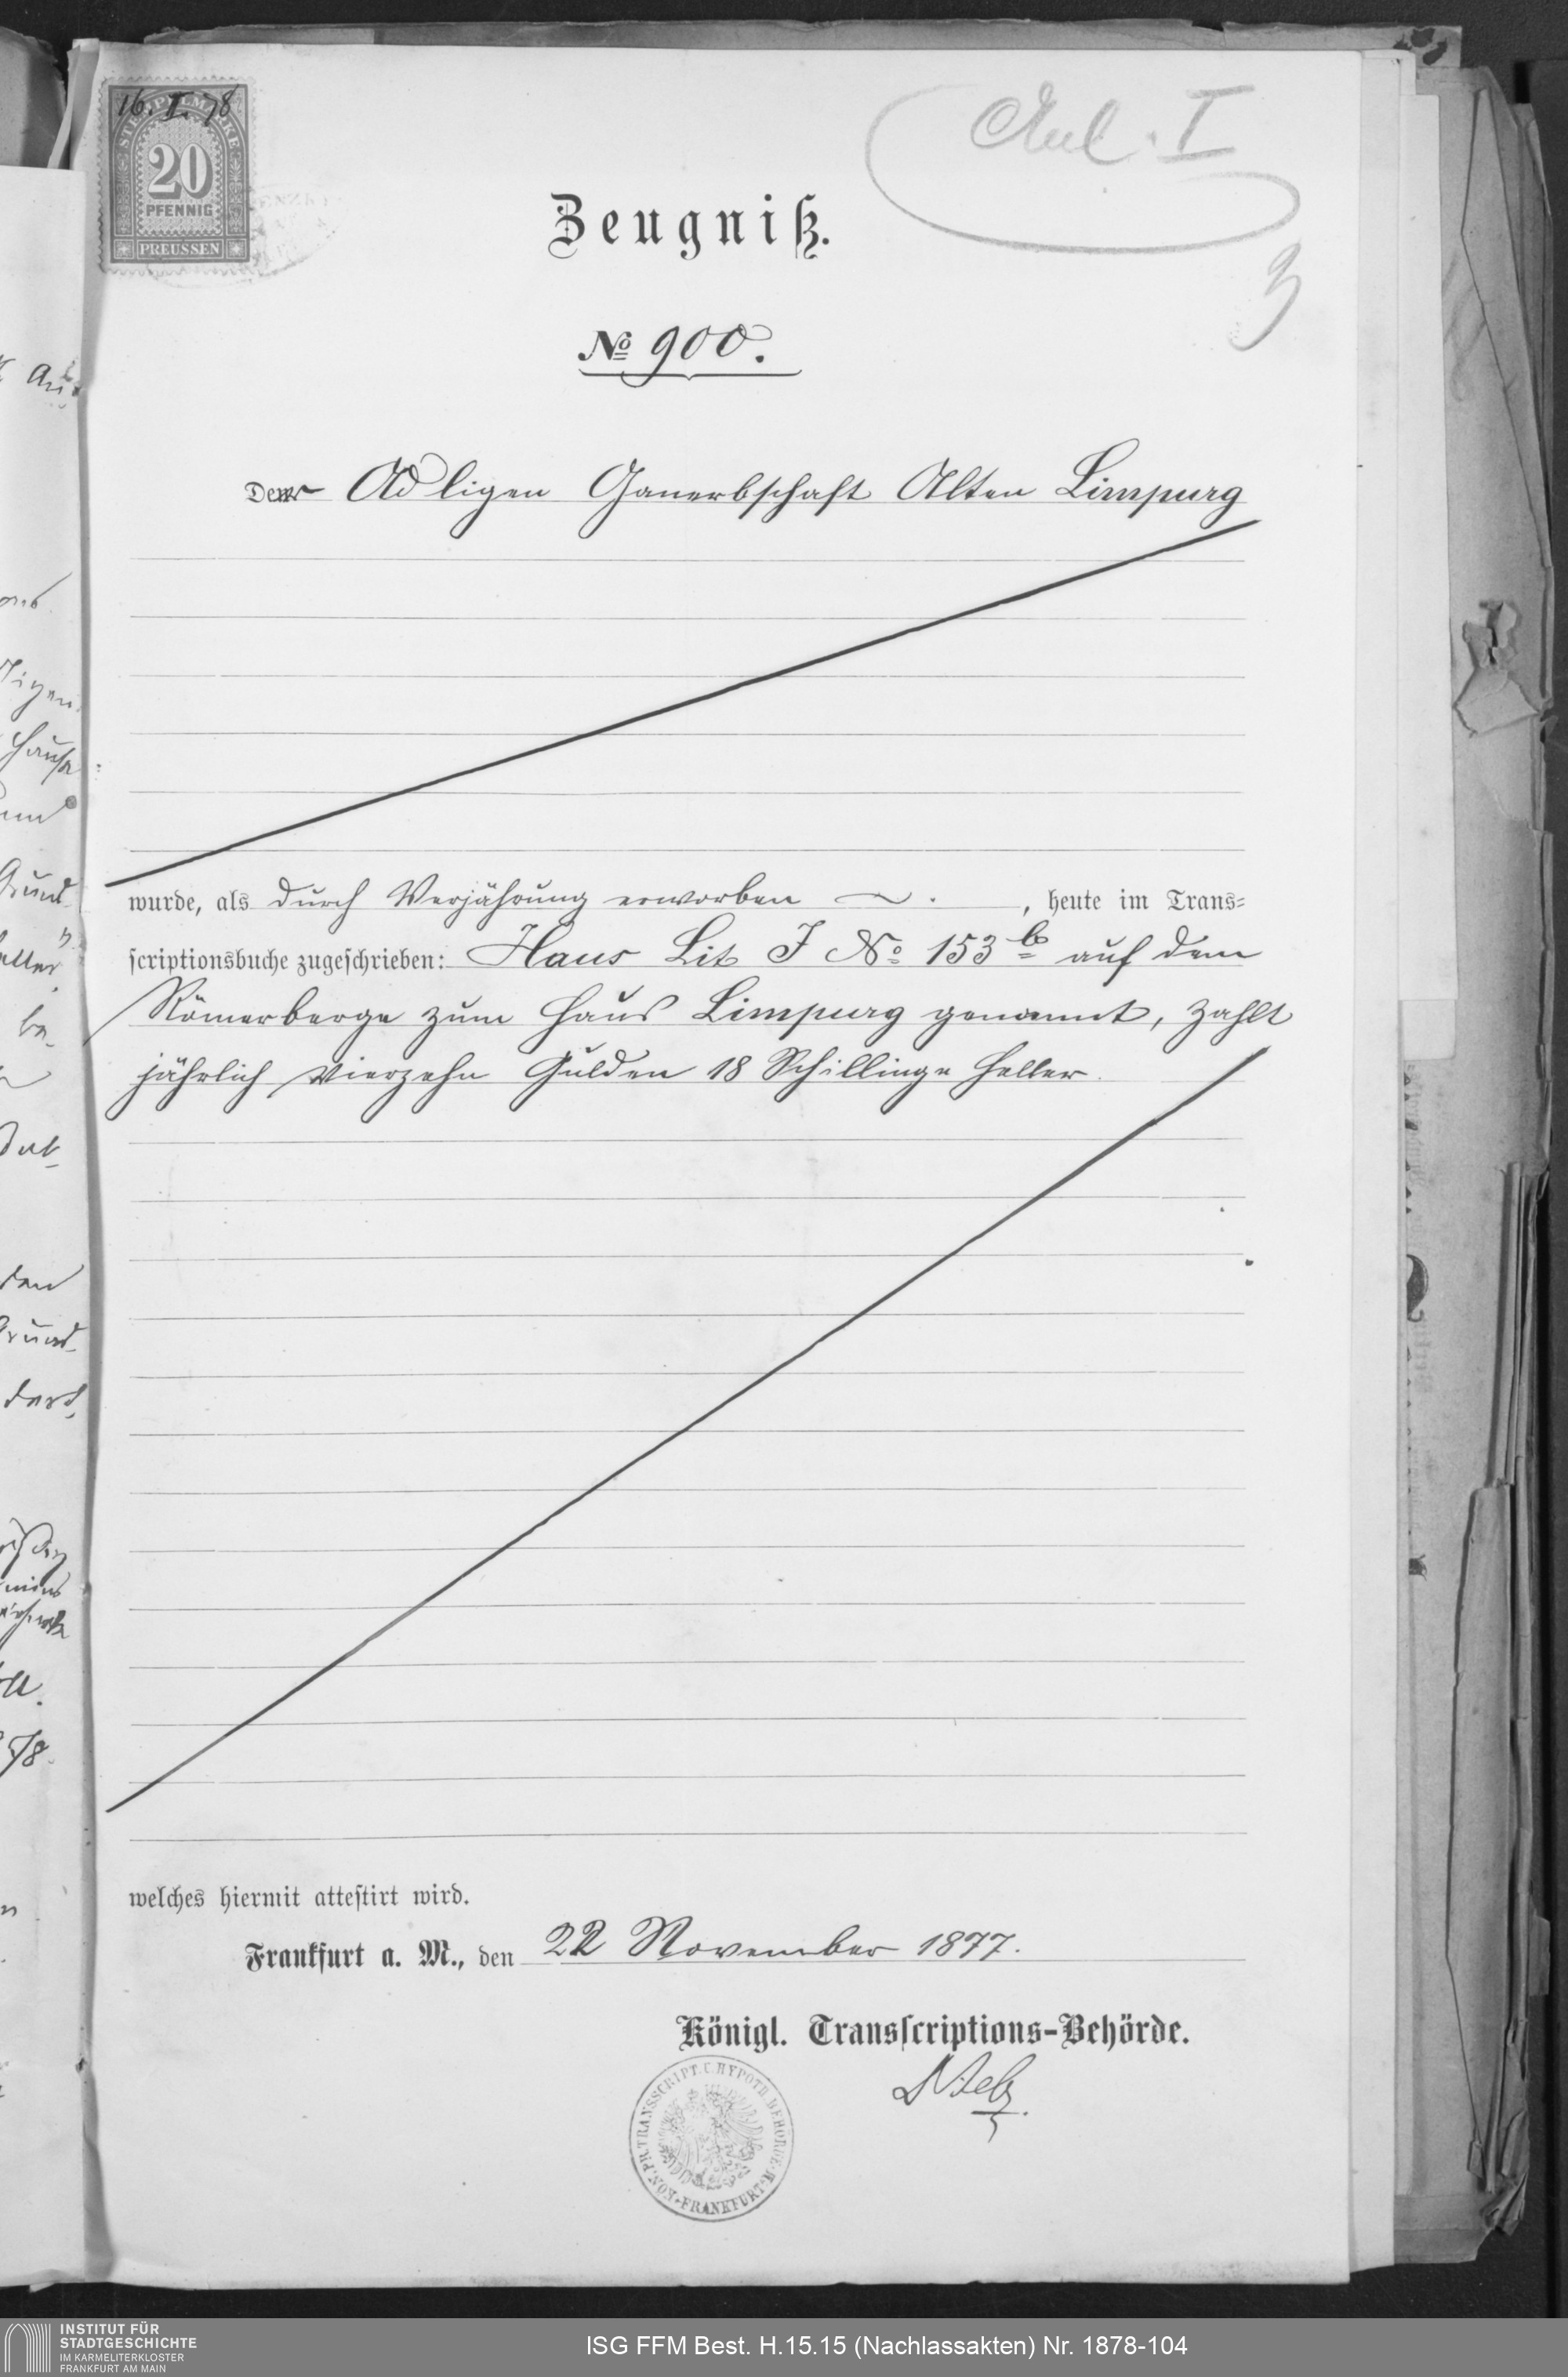 16. I. 78
STEMPELMARKE
20
PFENNIG
PREUSSEN
Anl. I
3
Zeugniß.
No 900.
Der Adligen Ganerbschaft Alten Limpurg
wurde, als durch Verjährung erworben , heute im Trans-
scriptionsbuche zugeschrieben: Haus Lit J No. 153 b auf dem
Römerberge zum Haus Limpurg genannt, zahlt
jährlich vierzehn Gulden 18 Schillinge Heller.
welches hiermit attestirt wird.
Frankfurt a. M., den 22 November 1877.
Königl. Transscriptions-Behörde.
KÖN. PR. TRANSSCRIPT. U. HYPOTH. BEHÖRDE FRANKFURT A. M.
INSTITUT FÜR
STADTGESCHICHTE
IM KARMELITERKLOSTER
FRANKFURT AM MAIN
ISG FFM Best. H.15.15 (Nachlassakten) Nr. 1878-104